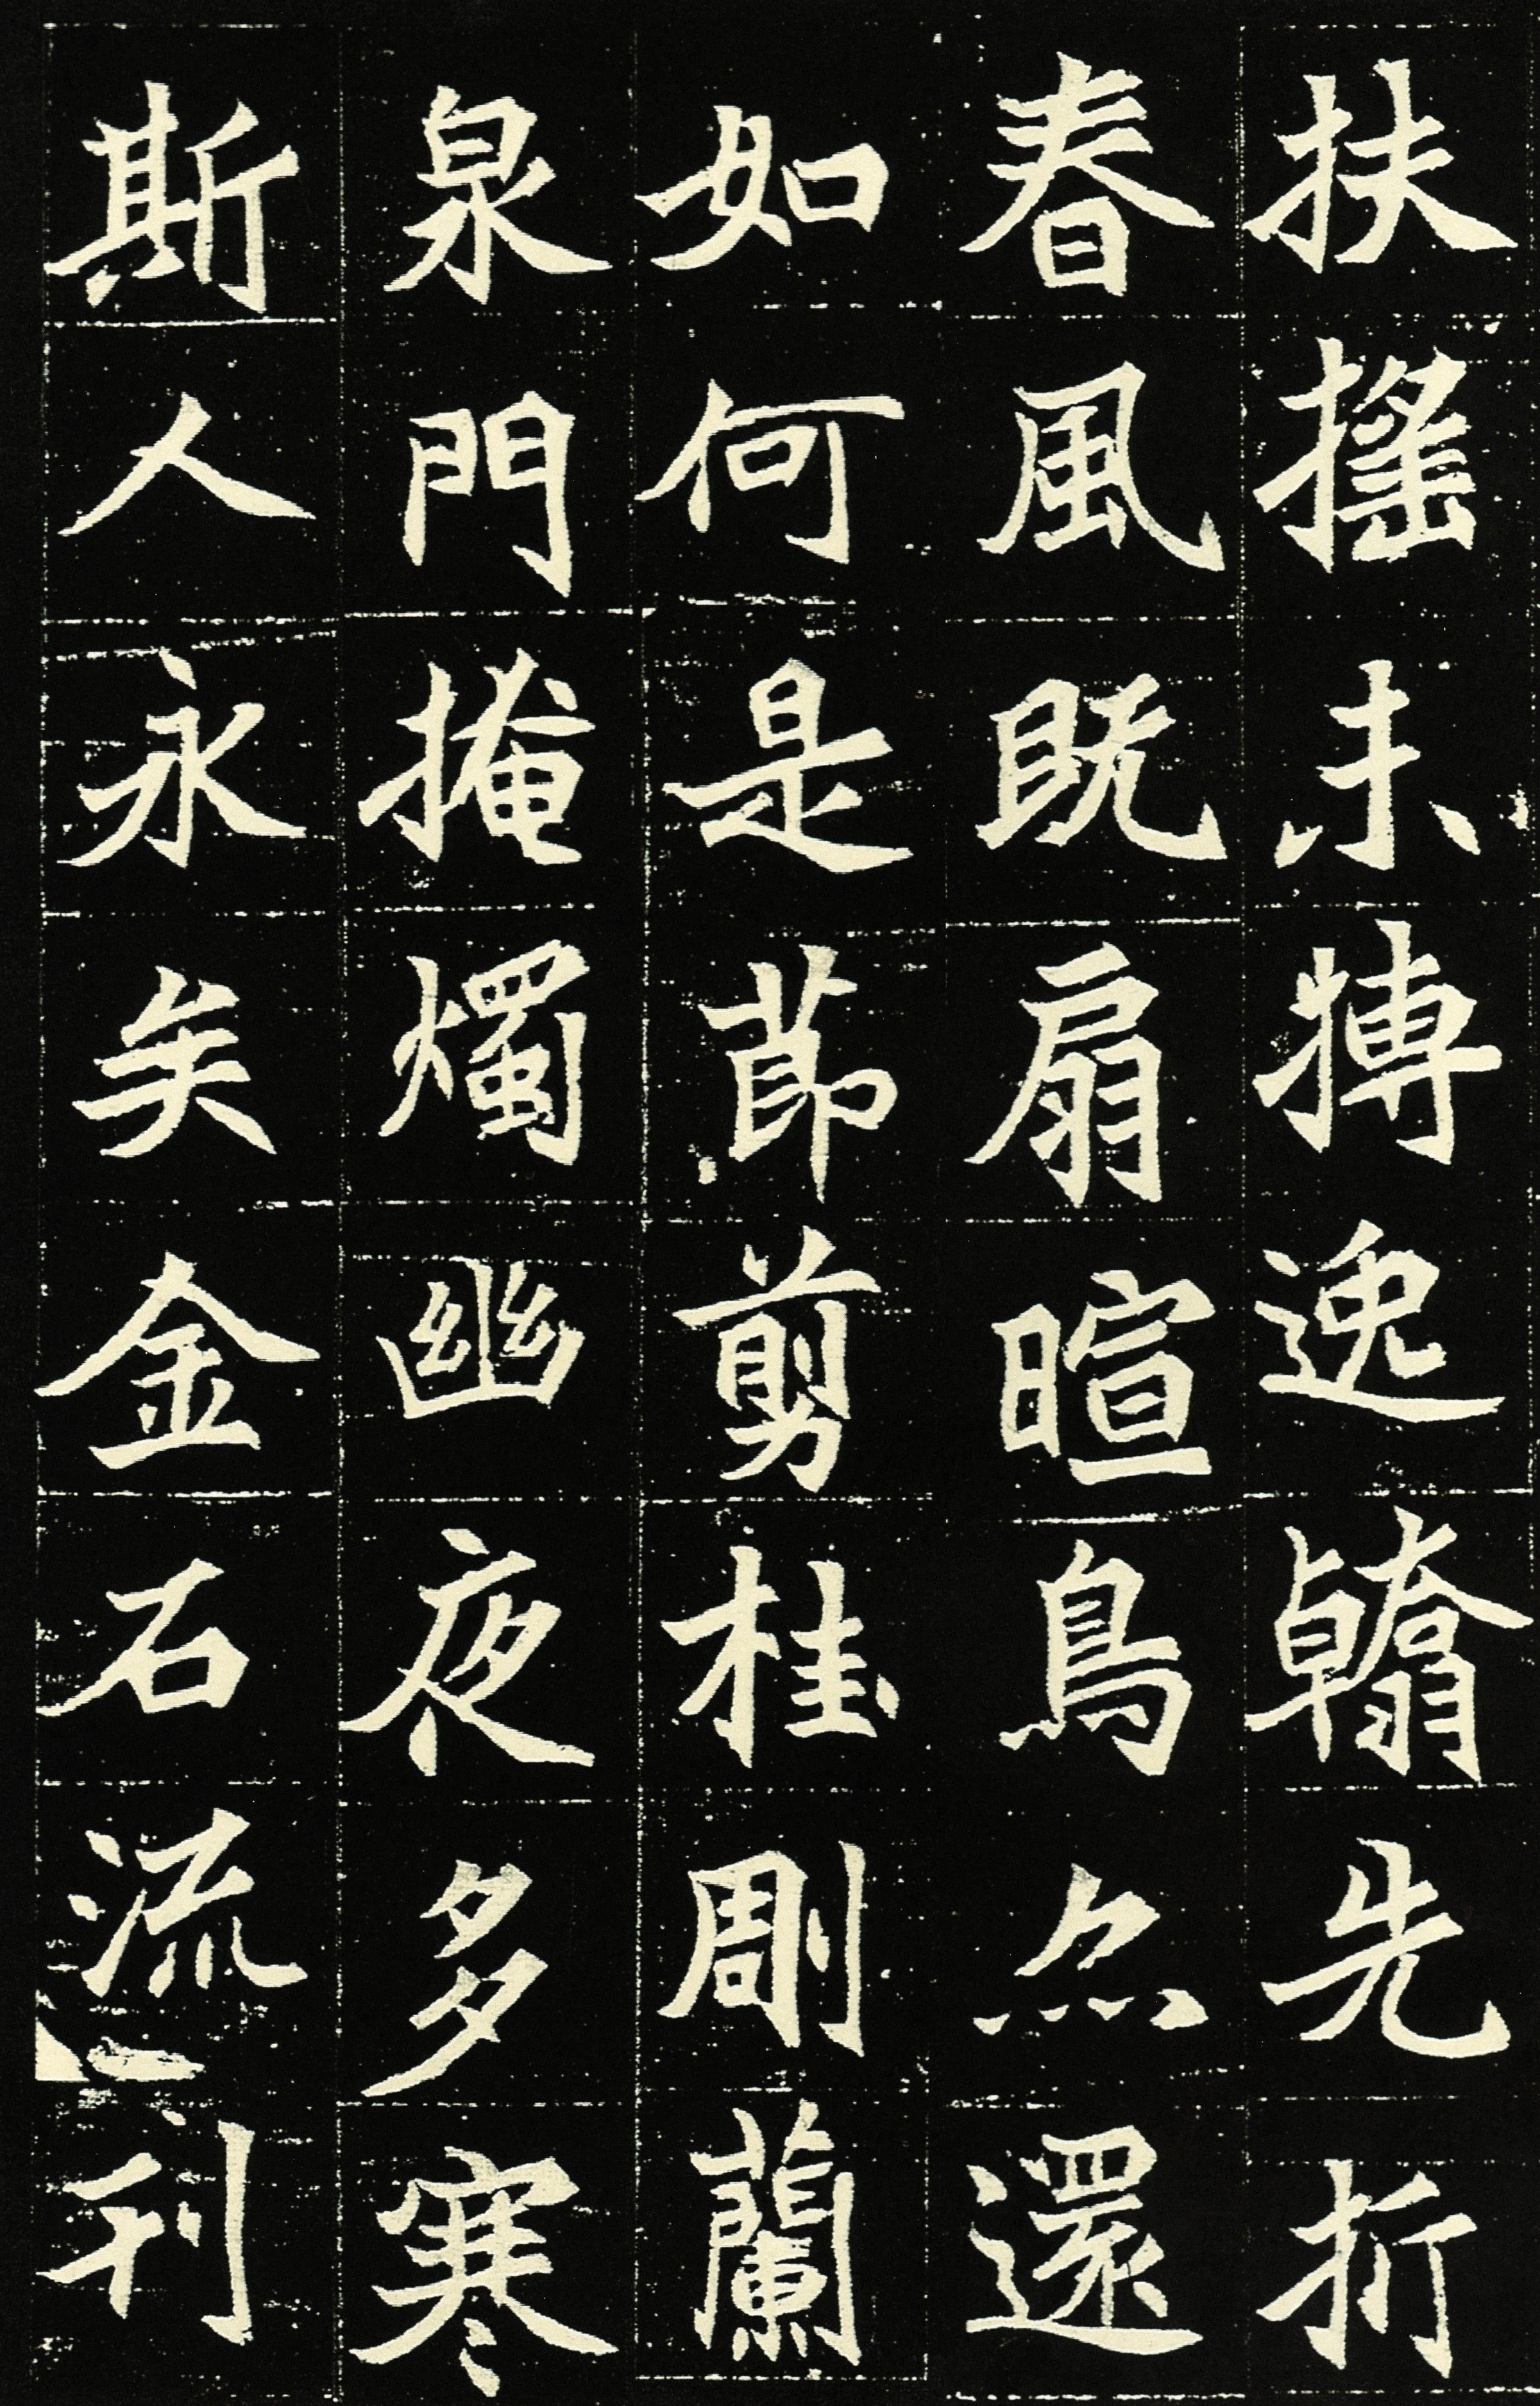 扶摇未搏逸翰先折
春風既扇暄鳥亦還
如何是節剪桂彫蘭
泉門掩燭幽夜多寒
斯人永矣金石流刊